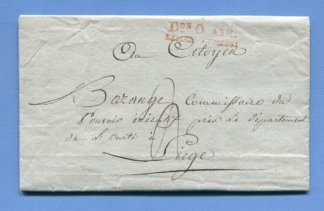 Don O ARM.
Au Citoyen
Bazange Commissaire du
Pouvoir exécutif près le département
de l'ourte à
Liège